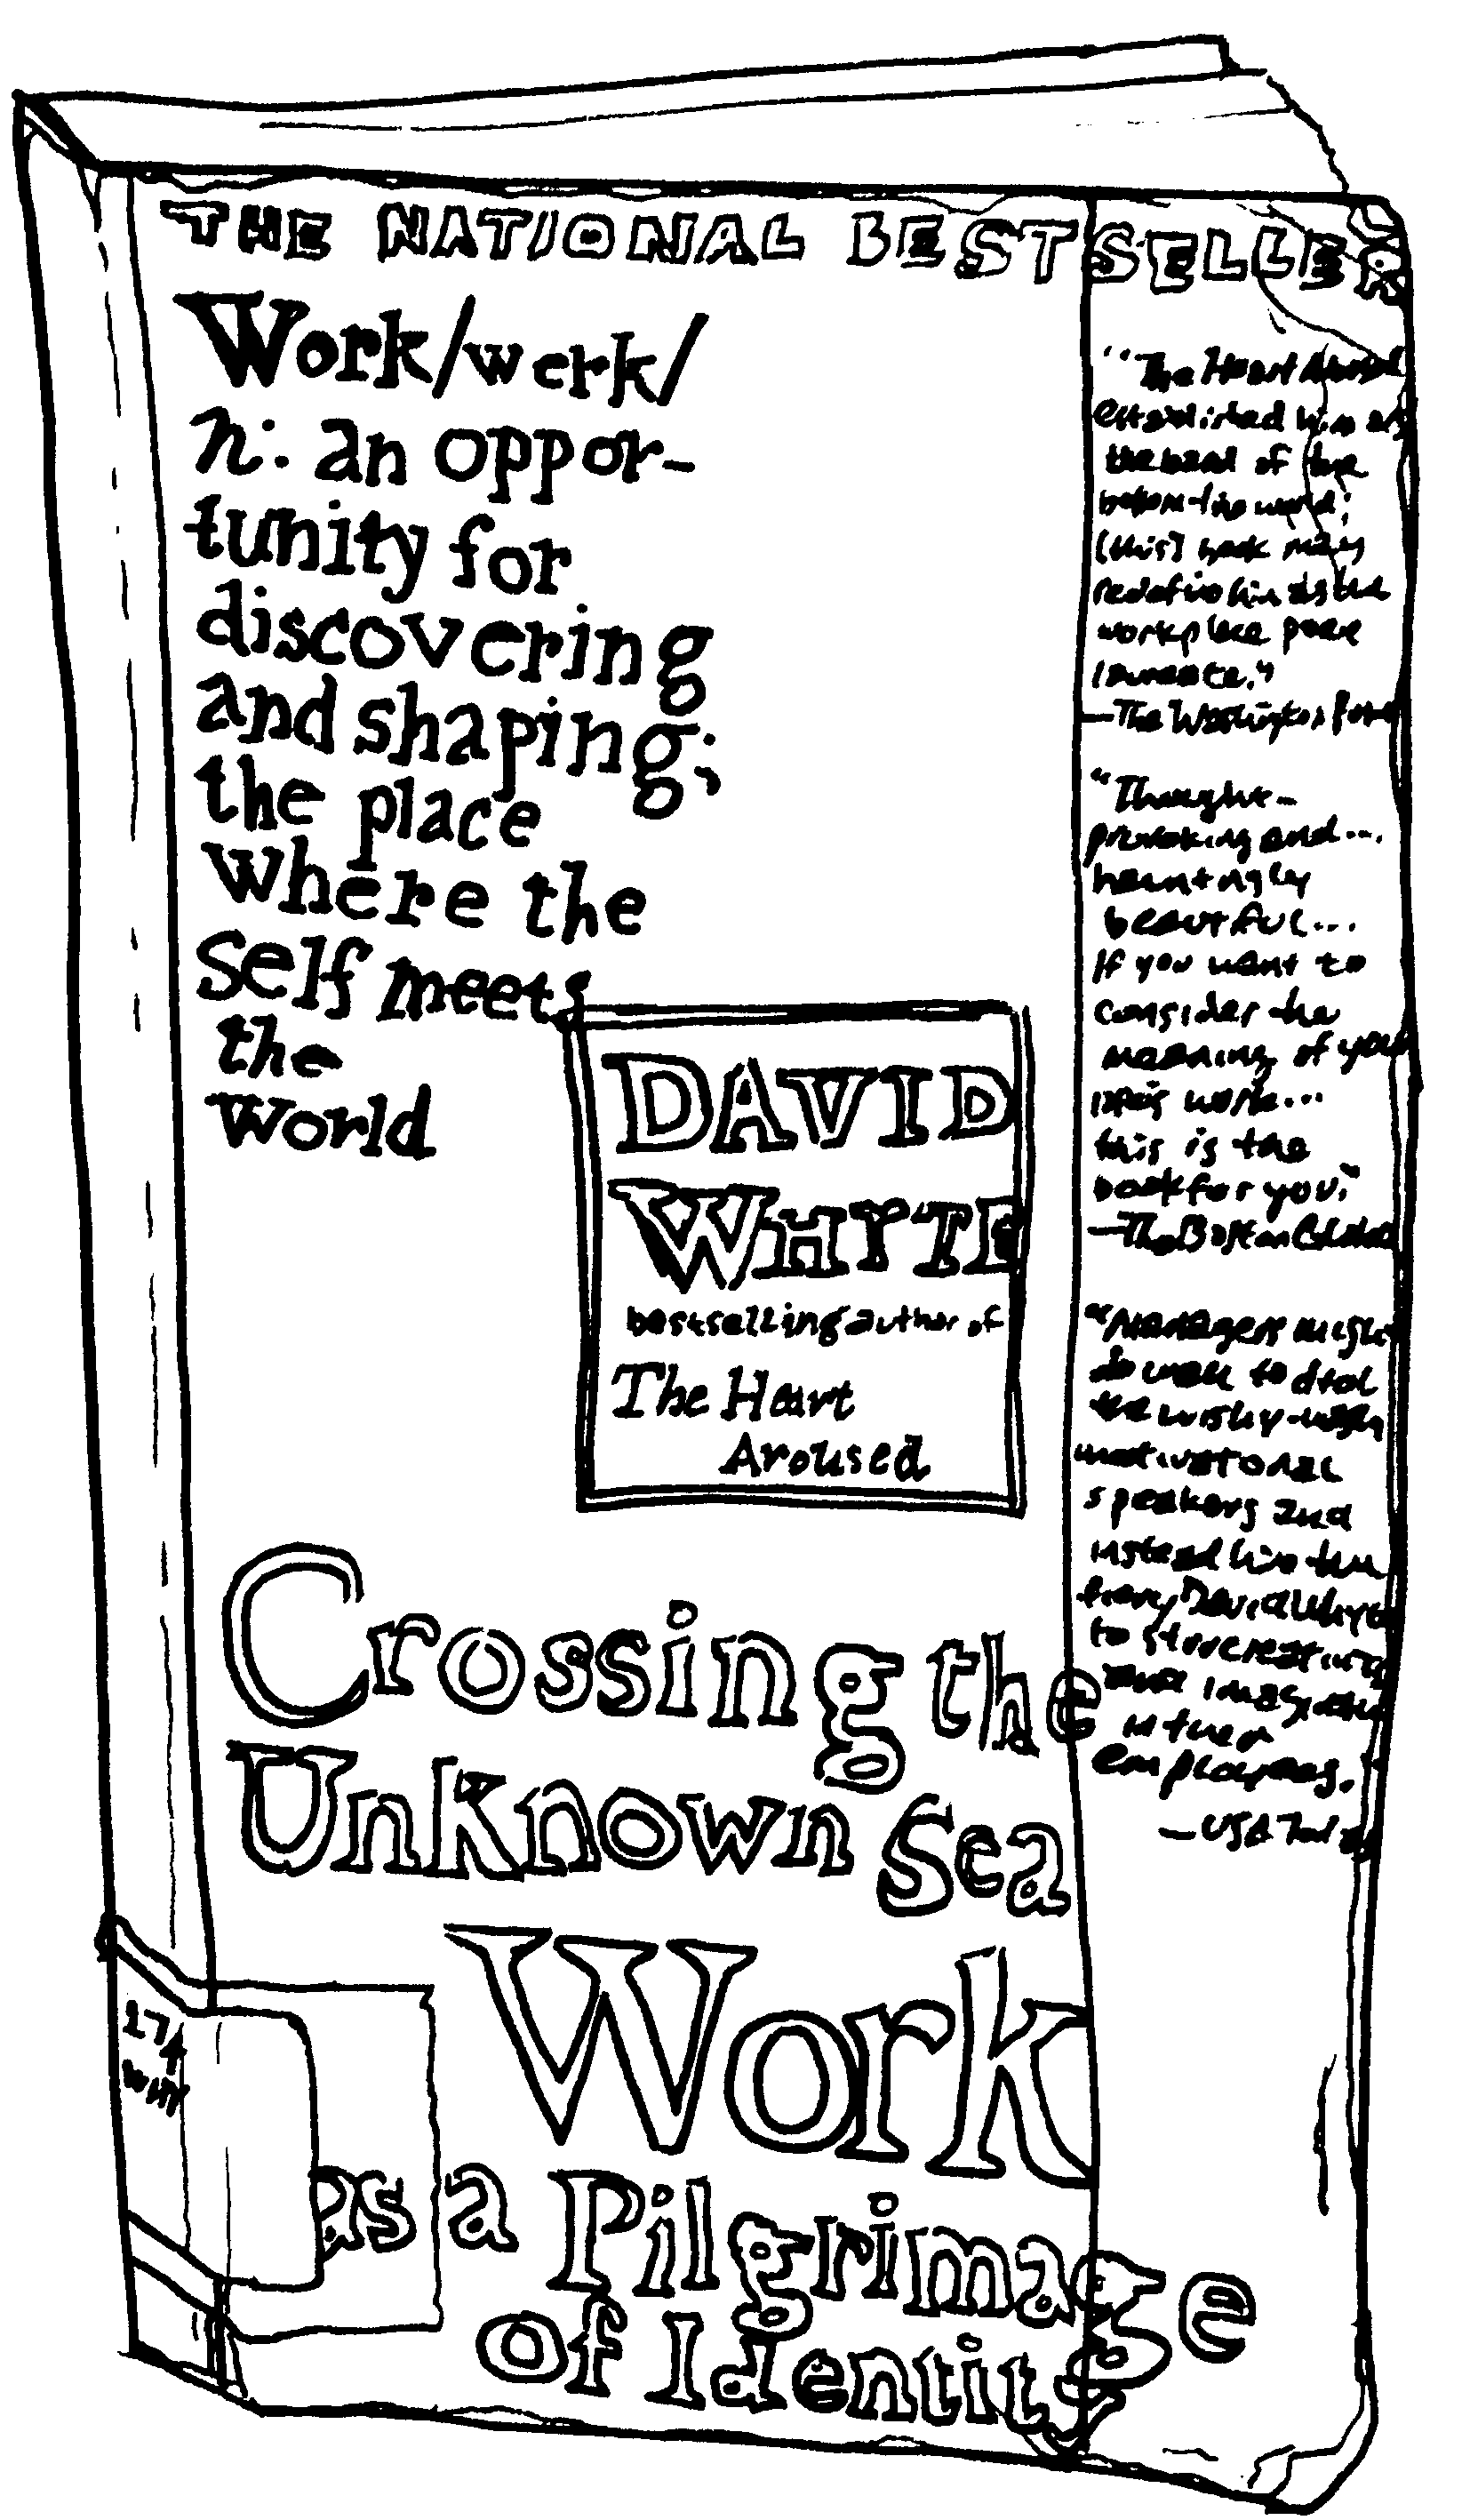 THE NATIONAL BESTSELLER
Work/werk/
n: an oppor-
tunity for
discovering
and shaping;
the place
where the
self meets
the
World
DAVID
WHYTE
bestselling author of
The Heart
Aroused
Crossing the
Unknown Sea
Work
as a Pilgrimage
of Identity
"The Heart
established him as
the of the
workplace
—The Washington
"Thought-
provoking and...
hauntingly
beautiful...
If you want to
consider the
meaning of your
work...
this is the
book for you."
—The Boston
"Managers might
do well to
the wishy-
motivational
speakers and
instead hire
David Whyte
to stir
in their
employees.
—USA
17